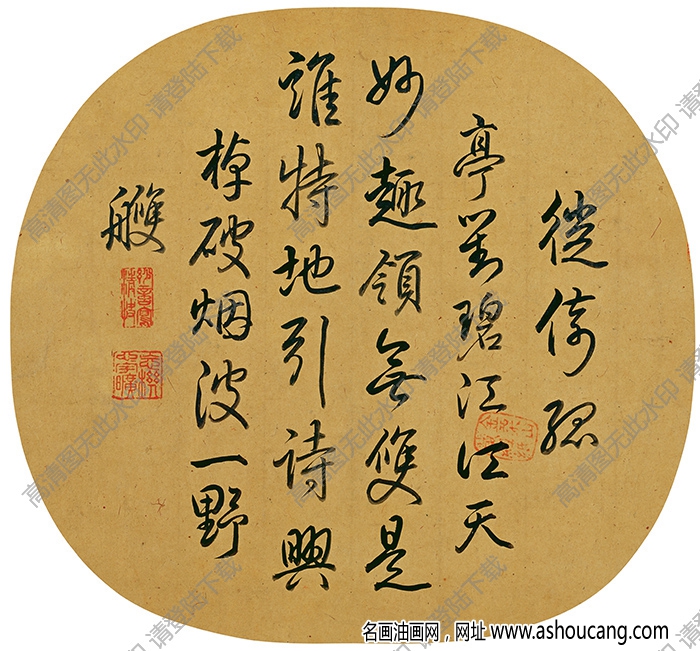 徙倚孤
亭對碧江江天
妙趣領無雙是
誰特地引詩興
棹破烟波一野
艭
高清图无此水印 请登陆下载
名画油画网，网址 www.ashoucang.com